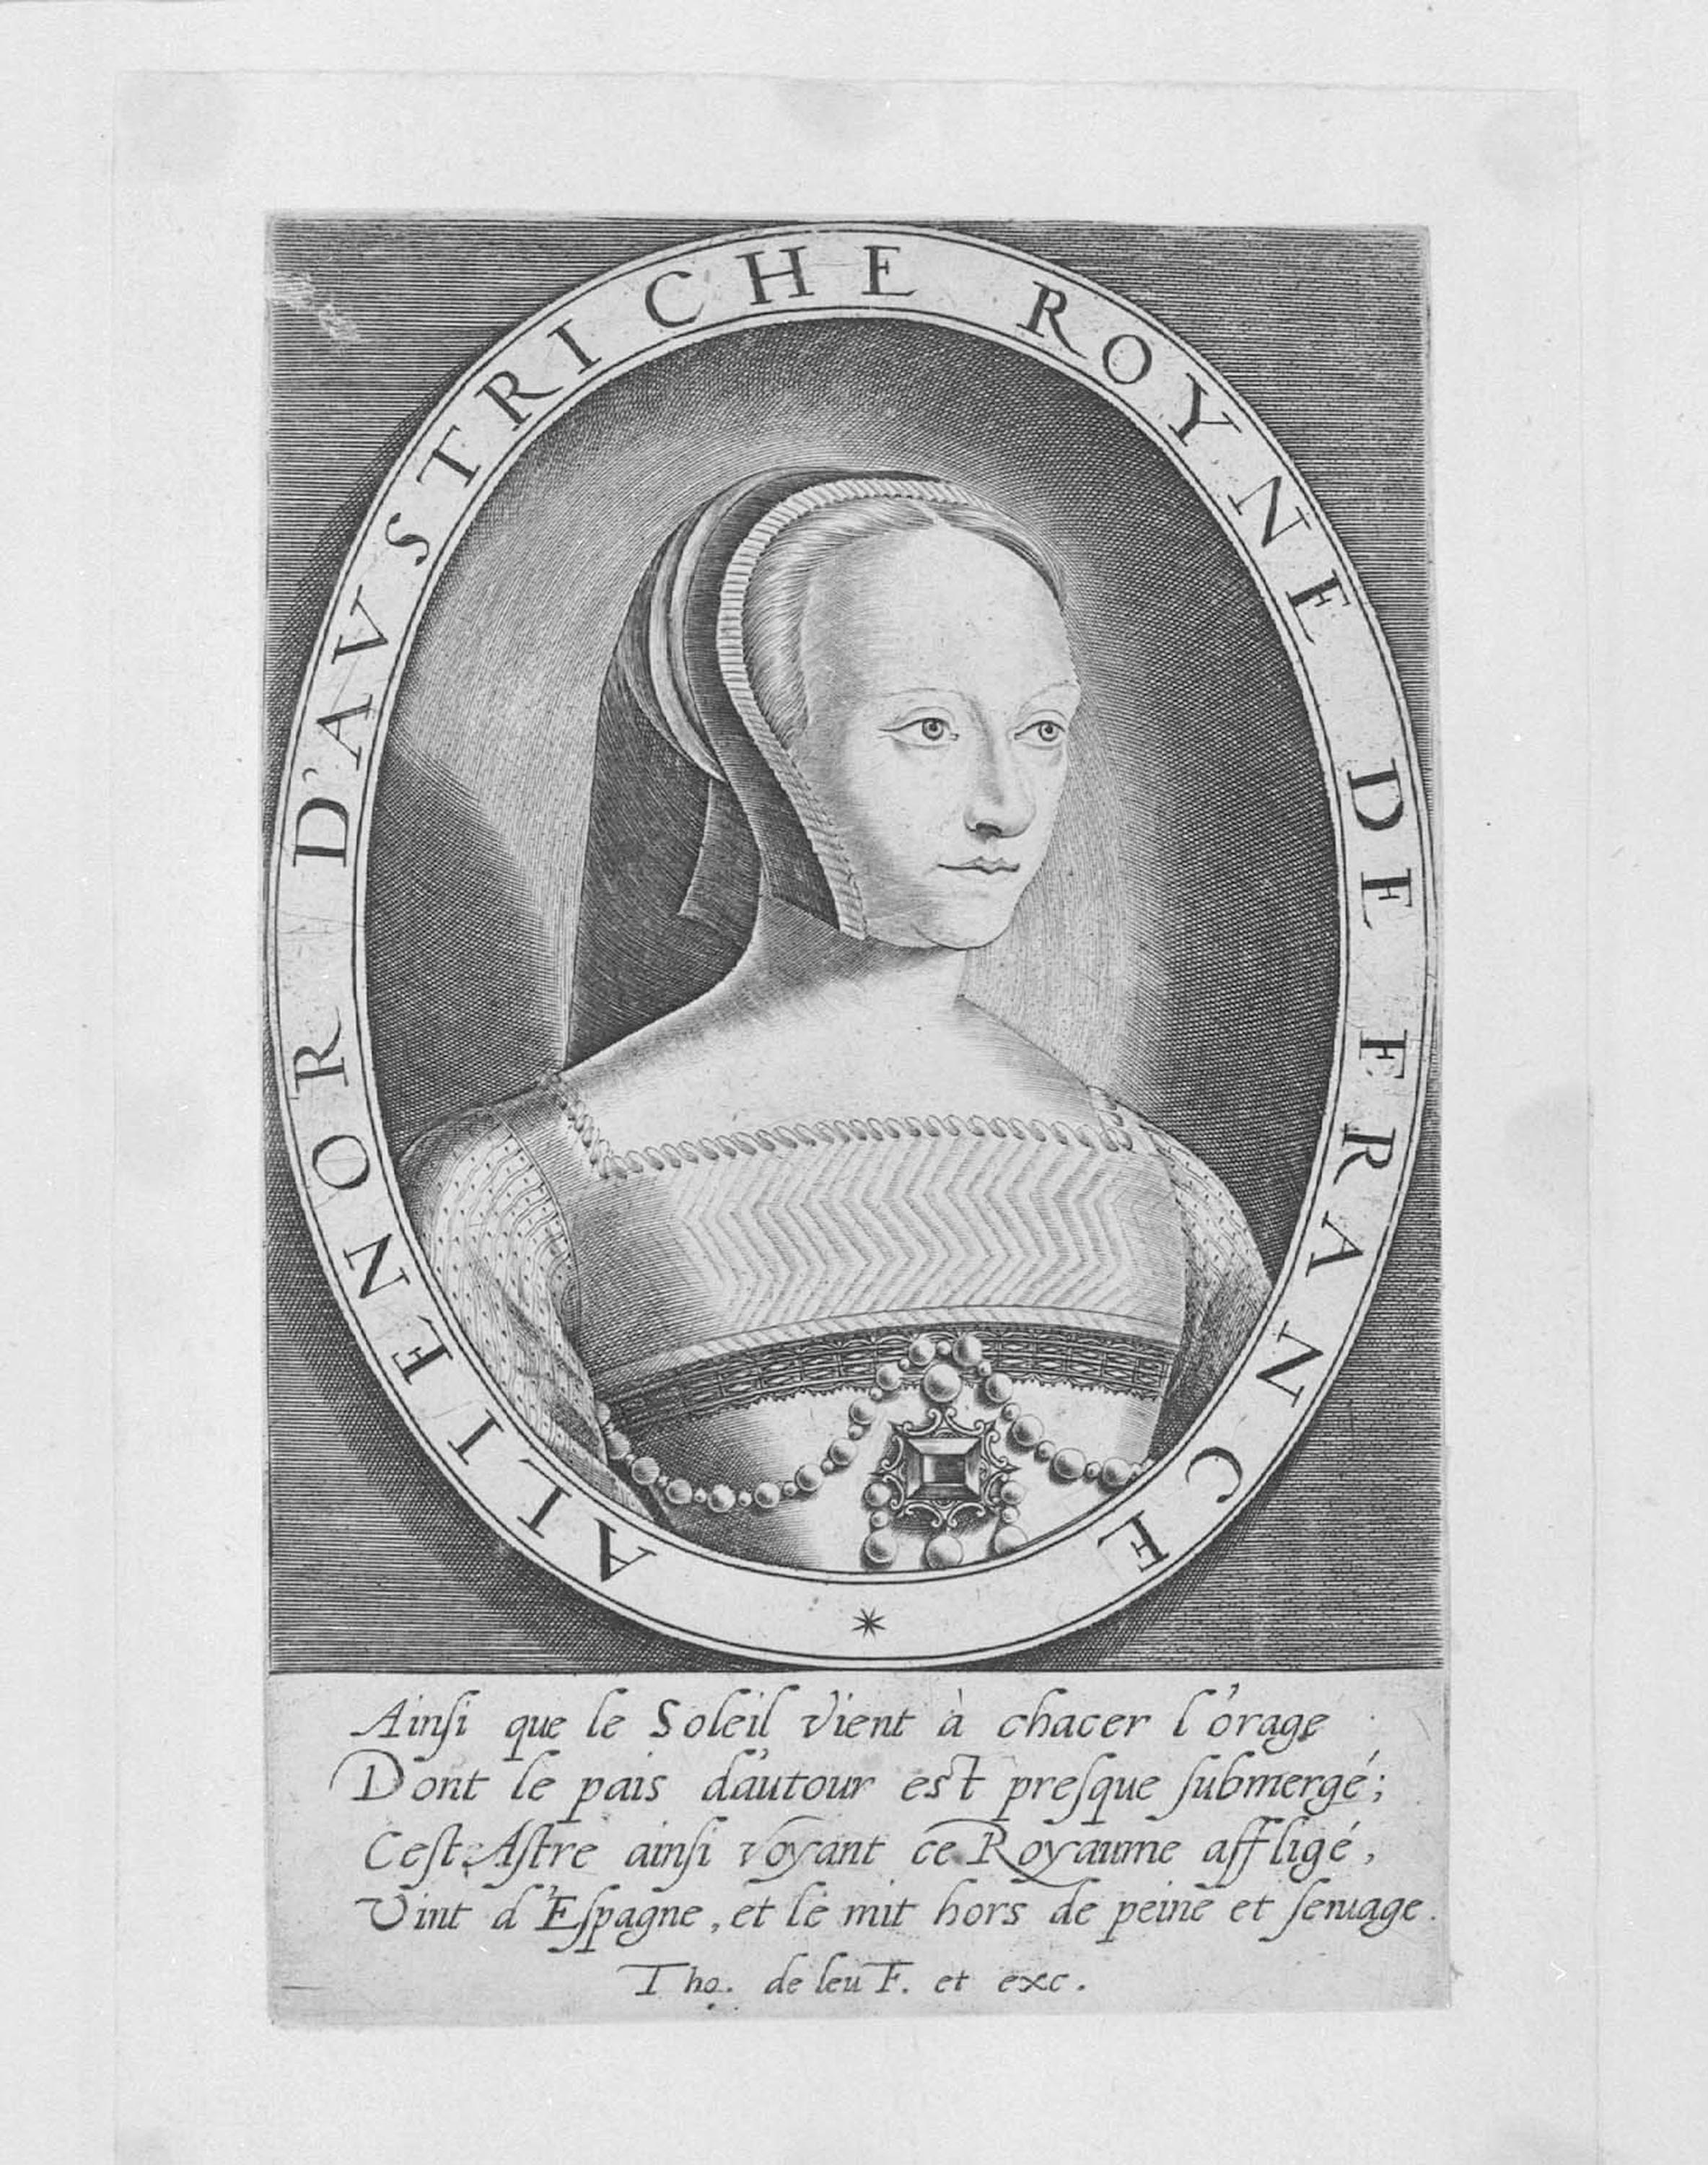 ALIENOR D'AVSTRICHE ROYNE DE FRANCE *
Ainſi que le Soleil vient à chacer l'orage
Dont le pais d'autour est preſque ſubmergé;
Ceſt Aſtre ainſi voyant ce Royaume affligé,
Vint d'Eſpagne, et le mit hors de peine et ſeruage.
Tho. de leu F. et exc.